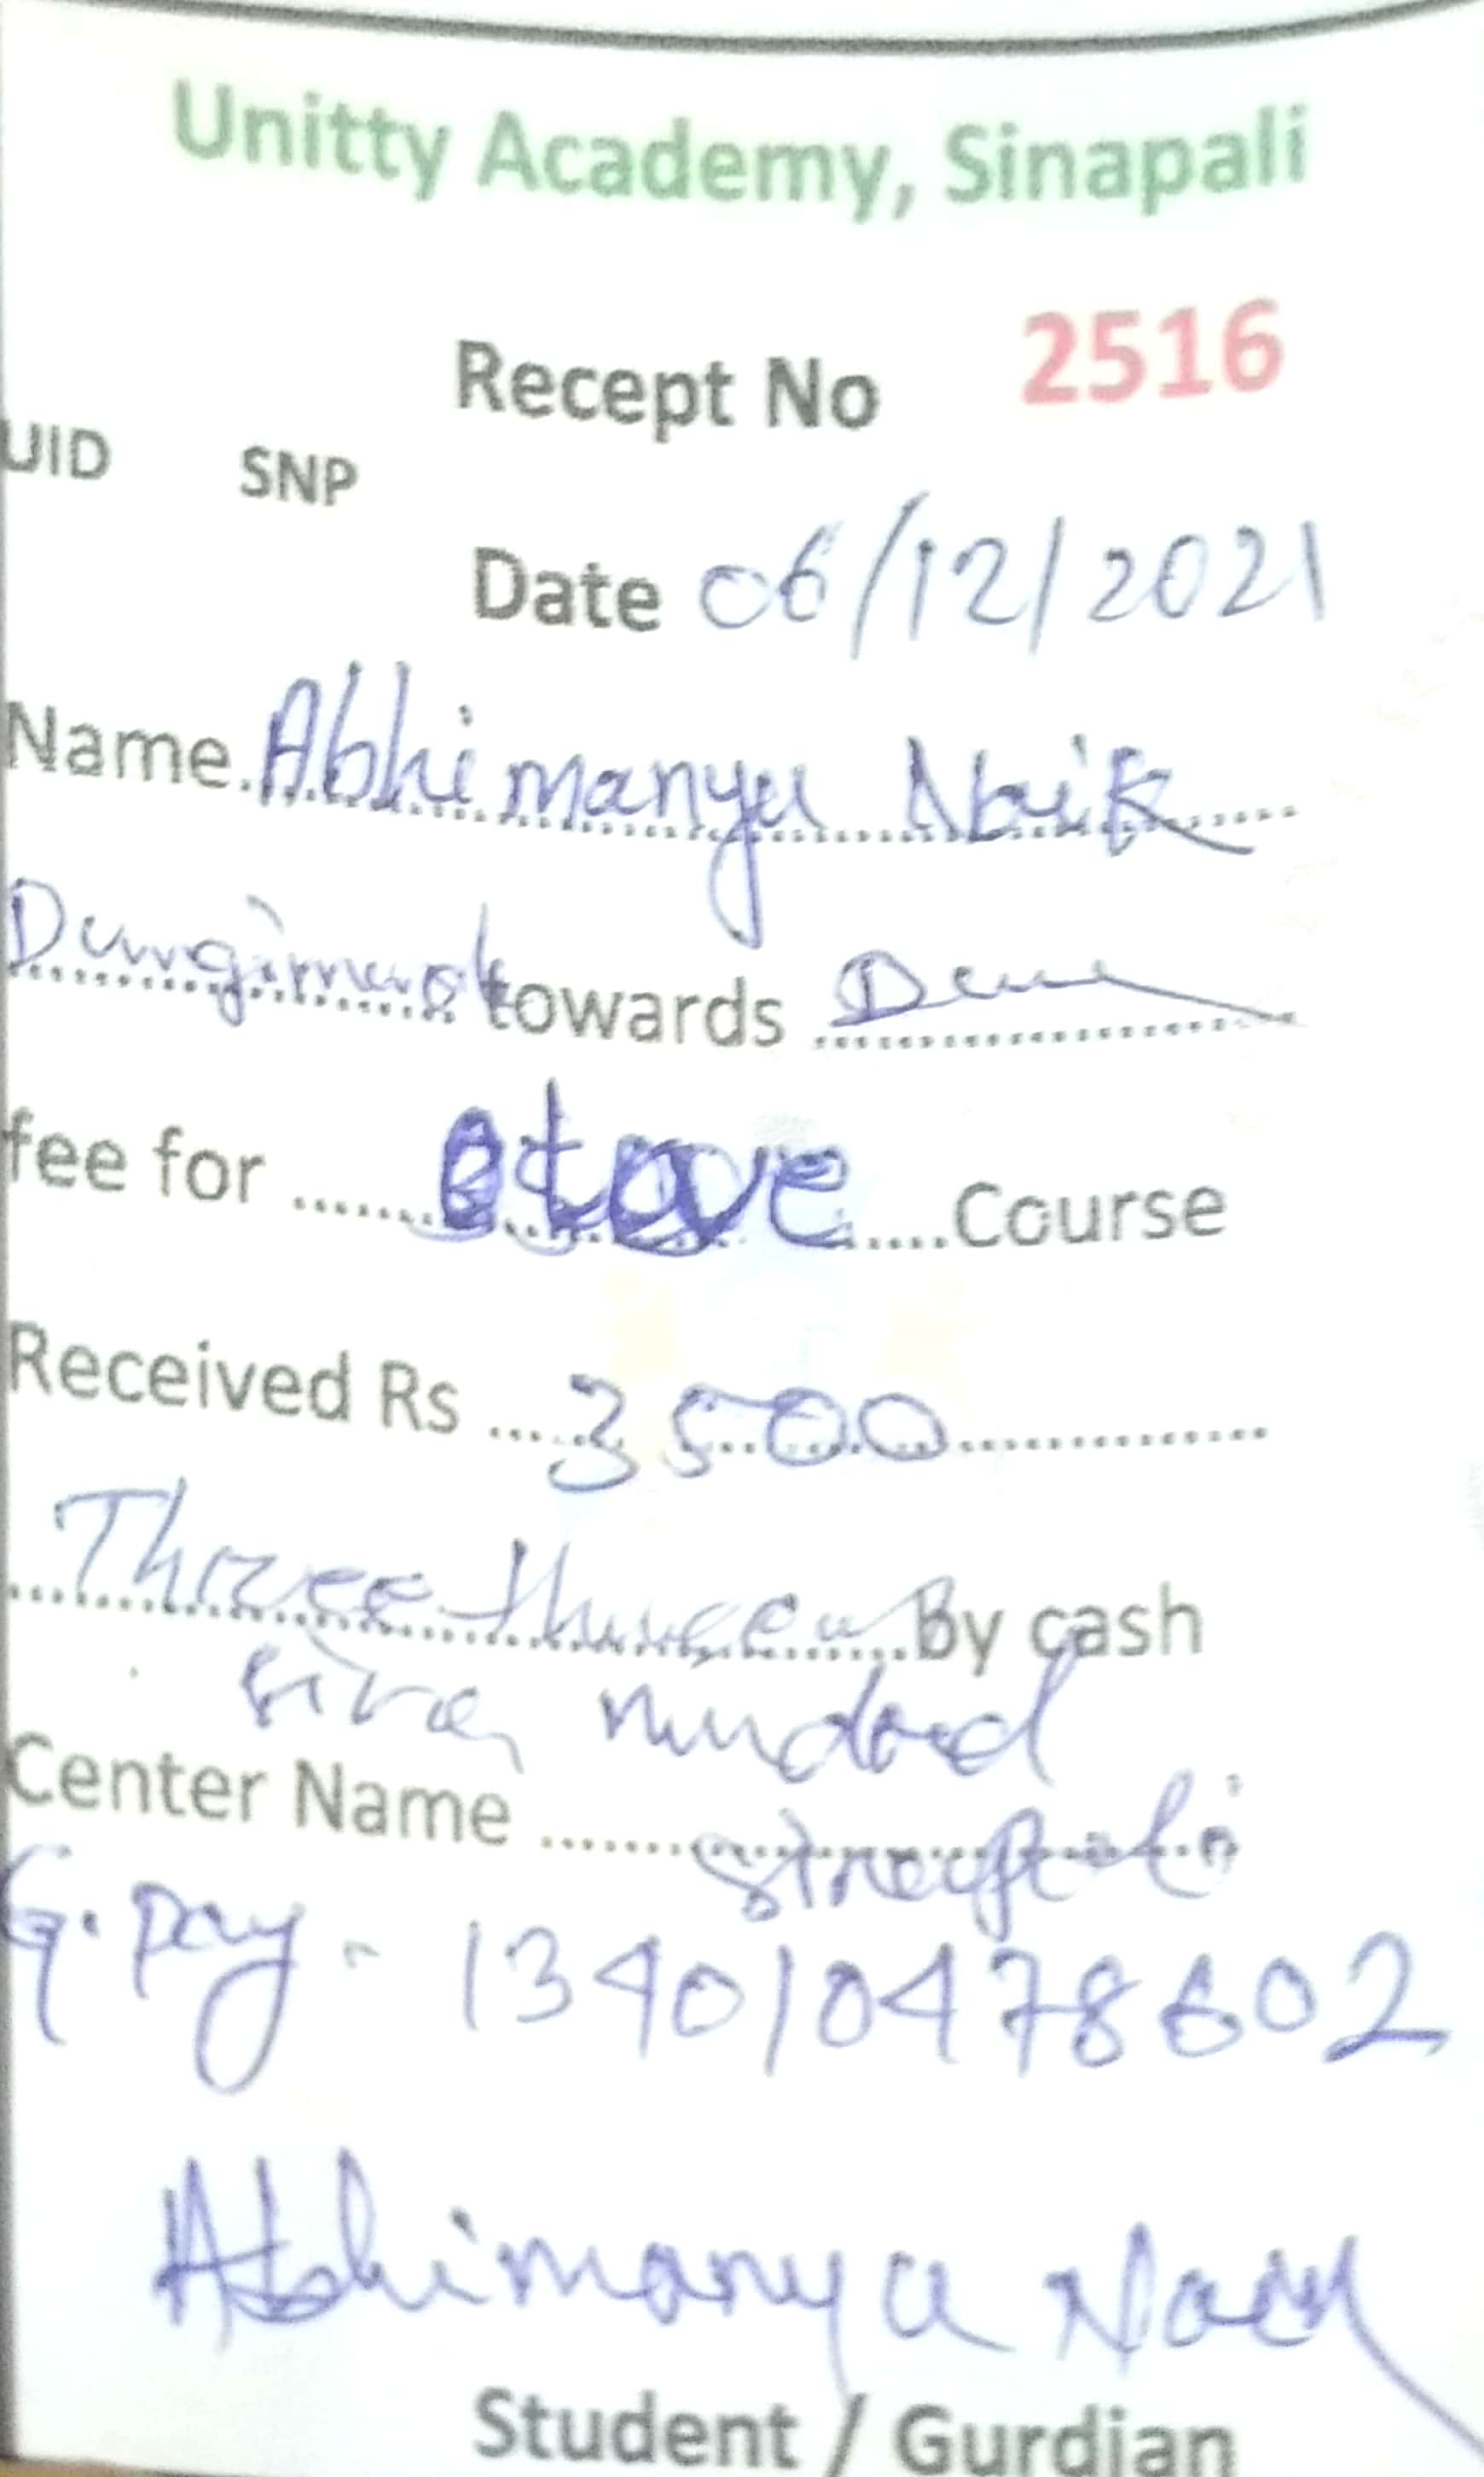 Unitty Academy, Sinapali
Recept No 2516
UID SNP
Date 06/12/2021
Name. Abhimanyu Naik
towards
fee for Course
Received Rs 3500
Three By cash
five hundred
Center Name Sinapali
G. Pay - 134010478602
Abhimanyu Naik
Student / Gurdian